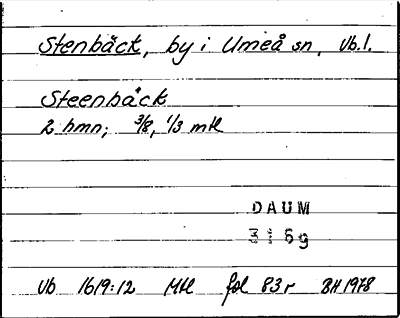 Stenbäck, by i Umeå sn, Vb.l.
Steenbäck
2 hmn; 3/8, 1/3 mtl
DAUM
3169
Vb 1619:12 Mtl fol 83r BH 1978